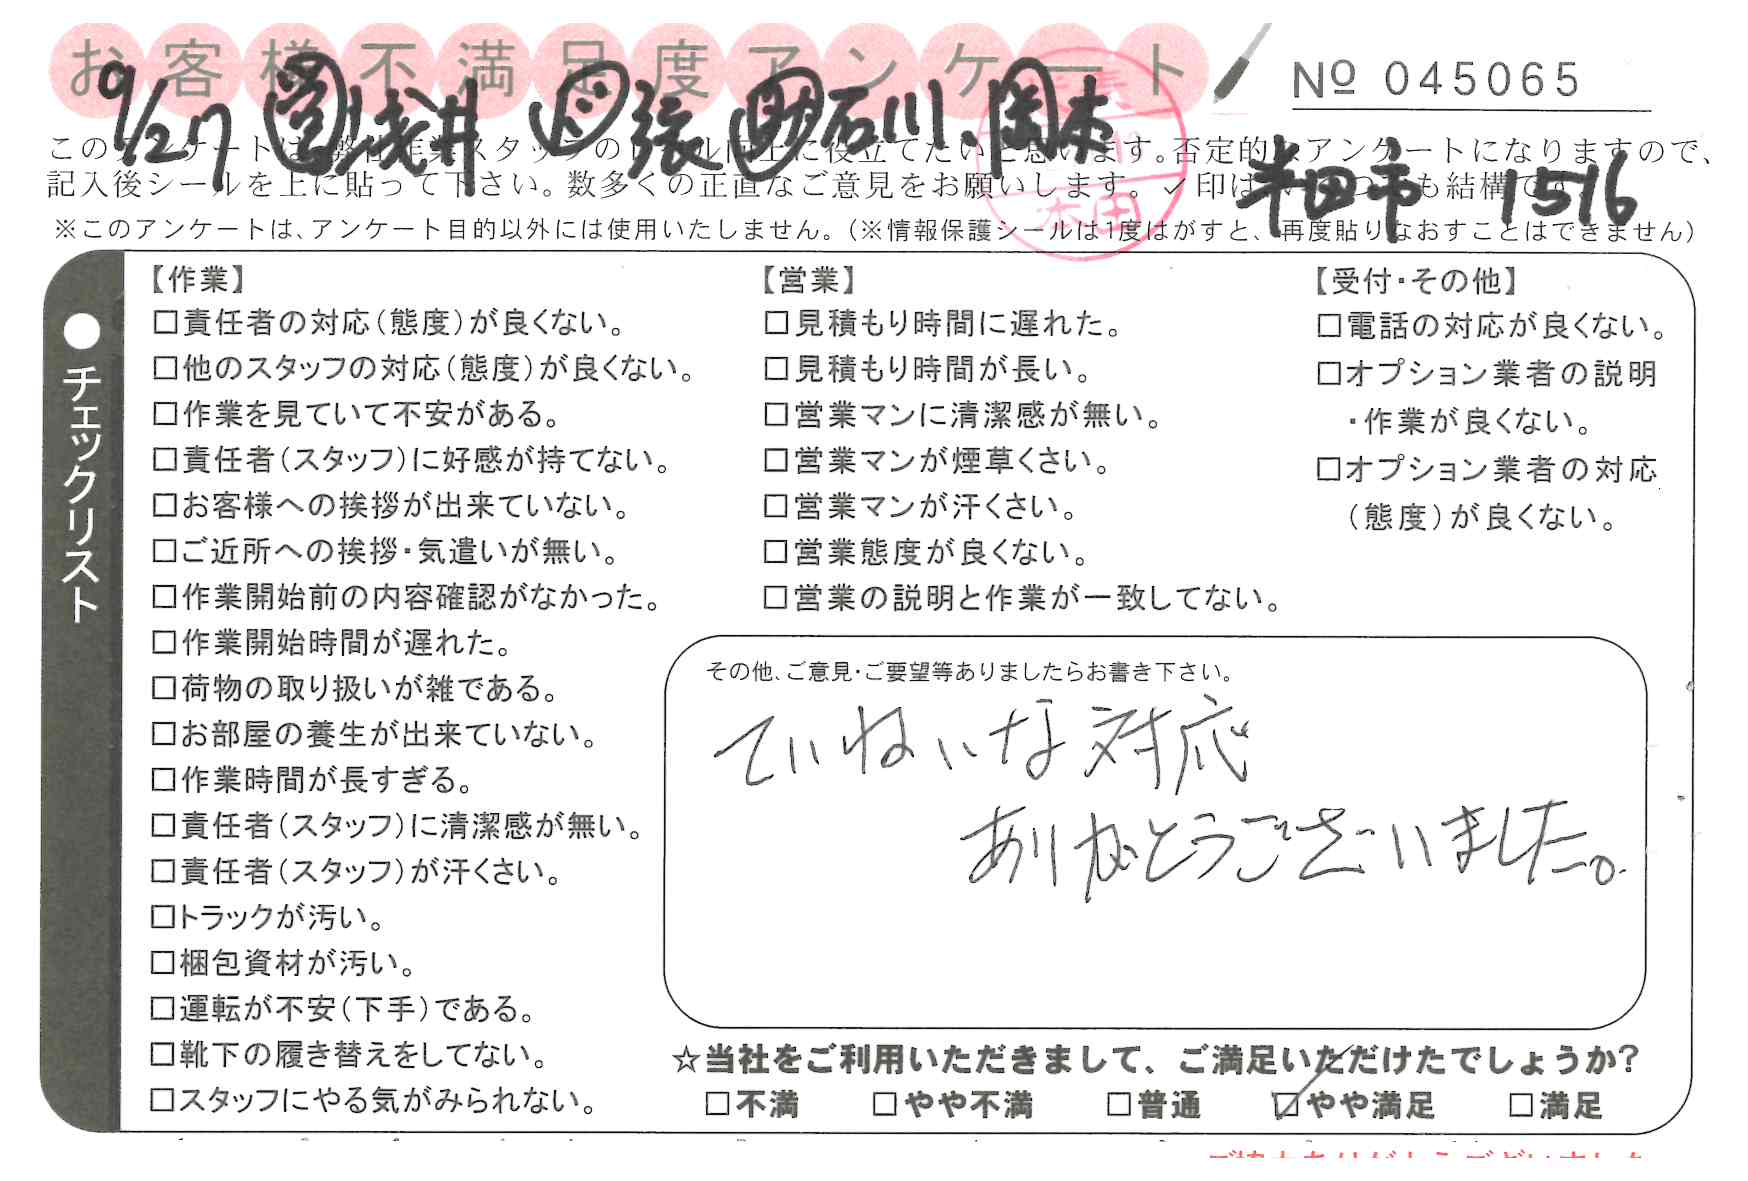 お客様不満足度アンケート
№ 045065
9/27 営 浅井 ド 張 助 石川、岡本
半田市 1516
このアンケートは、弊社作業スタッフのレベル向上に役立てたいと思います。否定的なアンケートになりますので、
記入後シールを上に貼って下さい。数多くの正直なご意見をお願いします。✓印はいくつでも結構です。
※このアンケートは、アンケート目的以外には使用いたしません。(※情報保護シールは1度はがすと、再度貼りなおすことはできません)
本田
●チェックリスト
【作業】
□責任者の対応(態度)が良くない。
□他のスタッフの対応(態度)が良くない。
□作業を見ていて不安がある。
□責任者(スタッフ)に好感が持てない。
□お客様への挨拶が出来ていない。
□ご近所への挨拶・気遣いが無い。
□作業開始前の内容確認がなかった。
□作業開始時間が遅れた。
□荷物の取り扱いが雑である。
□お部屋の養生が出来ていない。
□作業時間が長すぎる。
□責任者(スタッフ)に清潔感が無い。
□責任者(スタッフ)が汗くさい。
□トラックが汚い。
□梱包資材が汚い。
□運転が不安(下手)である。
□靴下の履き替えをしてない。
□スタッフにやる気がみられない。
【営業】
□見積もり時間に遅れた。
□見積もり時間が長い。
□営業マンに清潔感が無い。
□営業マンが煙草くさい。
□営業マンが汗くさい。
□営業態度が良くない。
□営業の説明と作業が一致してない。
【受付・その他】
□電話の対応が良くない。
□オプション業者の説明
・作業が良くない。
□オプション業者の対応
(態度)が良くない。
その他、ご意見・ご要望等ありましたらお書き下さい。
ていねいな対応
ありがとうございました。
☆当社をご利用いただきまして、ご満足いただけたでしょうか?
□不満 □やや不満 □普通 ☑やや満足 □満足